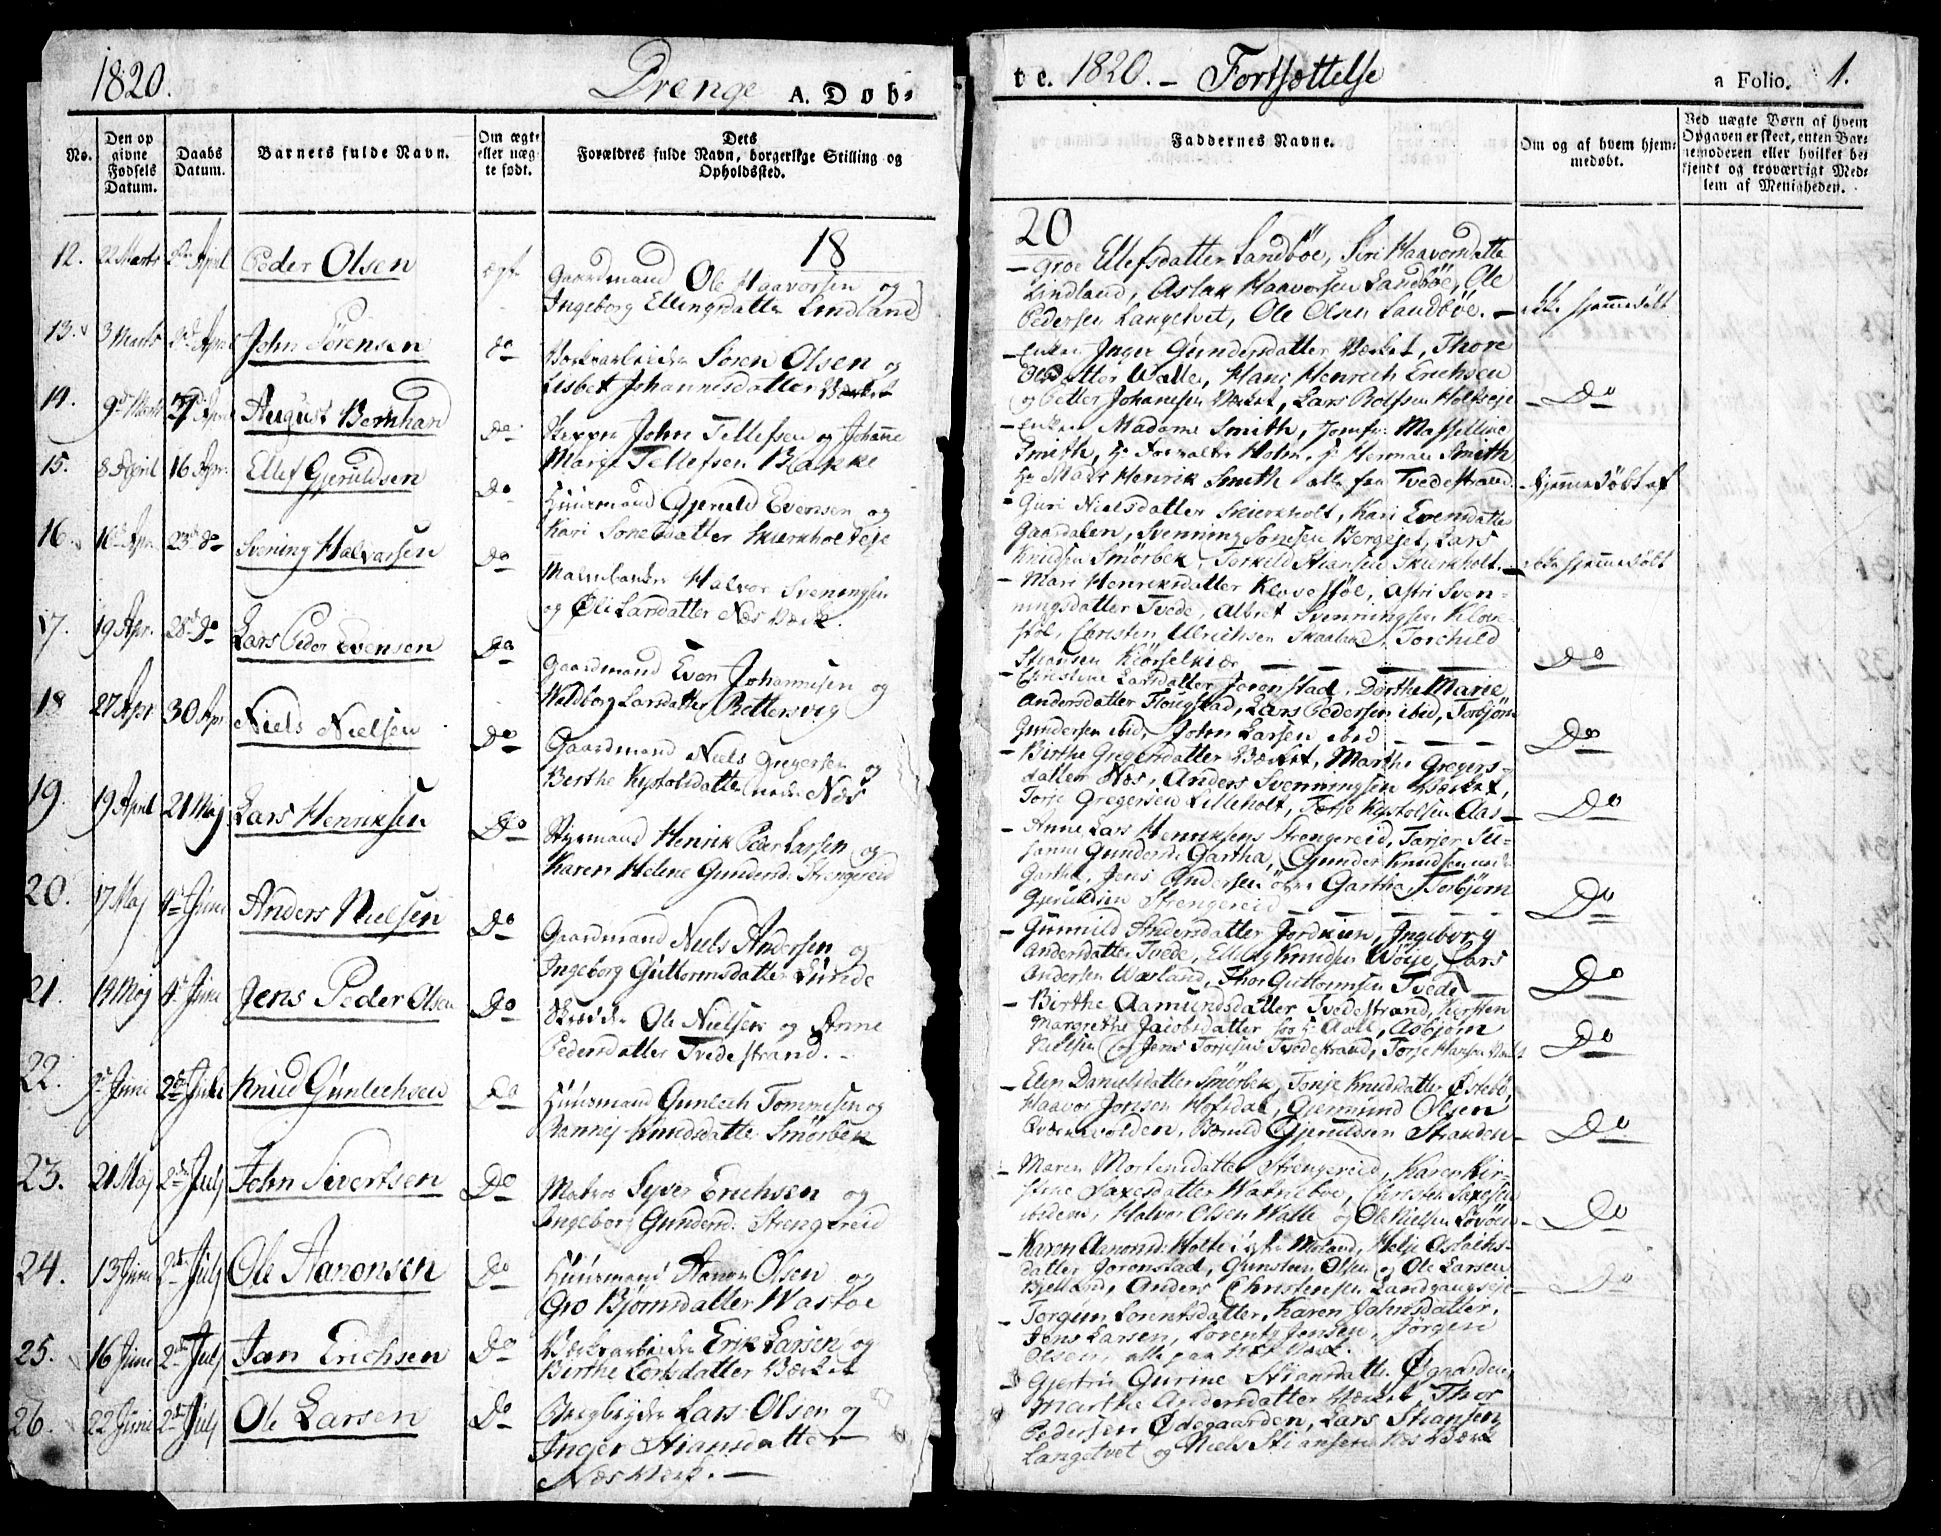 1820.
Drenge A. Dob-
No.
Den op
givne
Fødsels
Datum.
Daabs
Datum.
Barnets fulde Navn.
Om ægte
eller uæg-
te født.
Dets
Forældres fulde Navn, borgerlige Stilling og
Opholdssted.
18
12. 22 Marts April Peder Olsen ægt
Gaardmand Ole Haavorsen og
Ingeborg Ellingsdatter Lindland
13. 3 Marts April John Sörensen do
Værksarbeider Sören Olsen og
Lisbet Johannisdatter Værket
14. 9de Marts April August Bernhard do
Skipper John Tellefsen og Johanne
Marie Tellefsen Bakke
15. 8 April 16 Apr. Ellef Gjeruldsen do
Huusmand Gjeruld Evensen og
Kari Sonesdatter Skierkholt eje
16. 16de Apr. 23de do Svening Halvorsen do
Halvor Sveningsen
og Oli Larsdatter Næs Værk.
17. 19 Apr. 28de do Lars Peder Evensen do
Gaardmand Even Johannesen og
Waldborg Larsdatter Rettersvig
18 27 Apr 30 Apr Niels Nielsen Do
Gaardmand Niels Gregersen og
Berthe Kystolsdatter nedre Næs
19. 19 April 21 Maj Lars Henriksen Do
Styrmand Henrik Peder Larsen og
Karen Helene Gundersd. Strengereid
20. 17 Maj 4de Juni Anders Nielsen Do
Gaardmand Niels Andersen og
Ingeborg Guttormsdatter Lunde
21. 14 Maj 4de Juni Jens Peder Olsen Do
Skræder Ole Nielsen og Anne
Pedersdatter Tvedestrand.
22. Juni 2den Juli Knud Gunlechsen Do
Huusmand Gunlech Tommesen og
Knudsdatter Smörbek
23. 21 Maj 2den July John Sivertsen Do
Matros Syver Erichsen og
Ingeborg Gundersd. Strengereid
24. 13 Juni 2den July Ole Aanonsen Do
Huusmand Aanon Olsen og
Gro Bjornsdatter Wastöe
25. 16 Juni 2den July Jan Erichsen Do
Værksarbeider Erik Larsen og
Berthe Larsdatter Værket
26. 22 Juni 2den July Ole Larsen Do
Lars Olsen og
Inger Stiansdatter
Næs Værk.
te. 1820. - Fortsættelse
a Folio. 1.
Faddernes Navne.
Om og af hvem hjem-
medøbt.
Ved uægte Børn af hvem
Opgaven er skeet, enten Bar-
nemoderen eller hvilket be-
kjendt og troværdigt Med-
lem af Menigheden.
20
- Groe Ellefsdatter Landböe, Siri Haavorsdatter
Lindland, Aslak Haavorsen Landböe, Ole
Pedersen Langetvet, Ole Olsen Landböe. - ikke hjemmedöbt
- Enke Inger Gundersdatter Værket, Thore
Olsdatter Walle, Hans Henrich Erichsen
og Petter Johannesen Værket, Lars Rolfsen Holtseje - Do
- Enke Madame Smith, Jomfr.
Smith, Hr Forvalter Holm, Hr Herman Smith
Hr Mads Henrik Smith alle fra Tvedestrand. - hjemmedöbt af
- Guri Nielsdatter Skierkholt, Kari Evensdatter
Gaardalen, Svenning Sonesen Bergeset, Lars
Knudsen Smörbek, Torkild Stiansen Skierkholt. - ikke hjemmedöbt
- Mari Henriksdatter Klovestöl, Astri Sven-
ningsdatter Tvede, Albret Svenningsen Klove-
stöl, Christen Ulrichsen Skaaland, Torchild
Stiansen Kiörselkiær - Do
- Christine Larsdatter Jorenstad, Dorthe Marie
Andersdatter Hougstad, Lars Pedersen ibid, Torbjörn
Gundersen ibid, John Larsen ibid - Do
- Birthe Gregersdatter Værket, Marthe Gregers-
datter Næs, Anders Svenningsen Værket,
Torje Gregersen Lilleholt, Torje Kystolsen Aas - Do
- Anne Lars Henriksens Strengereid, Tarjer Su-
sanne Gundersd. Gartha, Gunder Knudsen
Gartha, Jens Andersen Gartha, Torbjörn
Gjeruldsen Strengereid - Do
- Gunnild Andersdatter Jordkien, Ingeborg
Andersdatter Tvede, Ellef Knudsen Wöye, Lars
Andersen Wæsland, Thor Guttormsen Tvede - Do
- Birthe Aamundsdatter Tvedestrand, Kirsten
Margrethe Jacobsdatter hos Hr Aall, Asbjörn
Nielsen og Jens Torjesen Tvedestrand, Torje Hansen Do
- Elen Danielsdatter Smörbek, Tonje Knudsdatter Östebö,
Haavor Jonsen Hofsdal, Gjermund Olsen
Qværnevolden, Gjeruldsen Stranden - Do
- Maren Mortensdatter Strengereid, Karen Kir-
stine Saxesdatter Watneboe, Christen Saxesen
ibidem, Halvor Olsen Walle og Ole Nielsen Lövöen - Do
- Karen Aanonsd. Holte Moland, Helje Aslachs-
datter Jorenstad, Gunsten Olsen og Ole Larsen
Bjelland, Anders Christensen Landgangseje - Do
- Torgun Lorentsdatter, Karen Johnsdatter,
Jens Larsen, Lorentz Jensen, Jörgen
Olsen, alle paa Næs Værk.
- Gjertru Gurine Stiansdatter Ögaarden,
Marthe Andersdatter Værket, Thor
Pedersen Ödegaarden, Lars Stiansen
Langetvet og Niels Stiansen Næs Værk